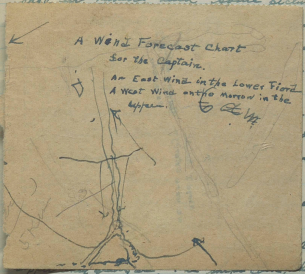 A Wind Forecast Chart
for the Captain.
An East Wind in the Lower Fiord
A West Wind on the Morrow in the
Upper.